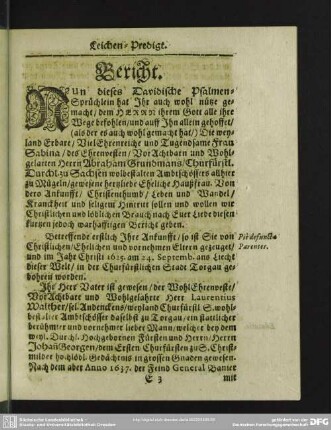 Leichen-Predigt.
Bericht.
Nun dieses Davidische Psalmen-
Sprüchlein hat Ihr auch wohl nütze ge-
macht / dem HERRN ihrem Gott alle ihre
Wege befohlen / und auff Ihn allein gehoffet /
(als der es auch wohl gemacht hat /) Die wey-
land Erbare / Viel Ehrenreiche und Tugendsame Frau
Sabina / des Ehrenvesten / VorAchtbarn und Wohl-
gelarten Herrn Abraham Grundmans / Churfürstl.
Durchl. zu Sachsen wolbestalten Ambtschössers allhier
zu Mügeln / gewesene hertzliebe Eheliche Haußfrau. Von
dero Ankunfft / Christenthumb / Leben und Wandel /
Kranckheit und seligem Hintritt sollen und wollen wir
Christlichen und löblichen Brauch nach Euer Liebe diesen
kurtzen jedoch warhafftigen Bericht geben.
Betreffende erstlich Ihre Ankunfft / so ist Sie von
Christlichen / Ehrlichen und vornehmen Eltern gezeuget /
und im Jahr Christi 1615. am 24. Septemb. ans Liecht
dieser Welt / in der Churfürstlichen Stadt Torgau ge-
bohren worden.
Piè defunctæ
Parentes.
Ihr Herr Vater ist gewesen / der WohlEhrnveste /
VorAchtbare und Wohlgelahrte Herr Laurentius
Walther / sel. Andenckens / weyland Churfürstl. S. wohl-
bestalter Ambtschösser daselbst zu Torgau / ein stattlicher
berühmter und vornehmer lieber Mann / welcher bey dem
weyl. Durchl. Hochgebornen Fürsten und Herrn / Herrn
Johan Georgen / dem Ersten Churfürsten zu S. Christ-
milder hochlöbl. Gedächtnis in grossen Gnaden gewesen.
Nach dem aber Anno 1637. der Feind General Banier
E 3
mit